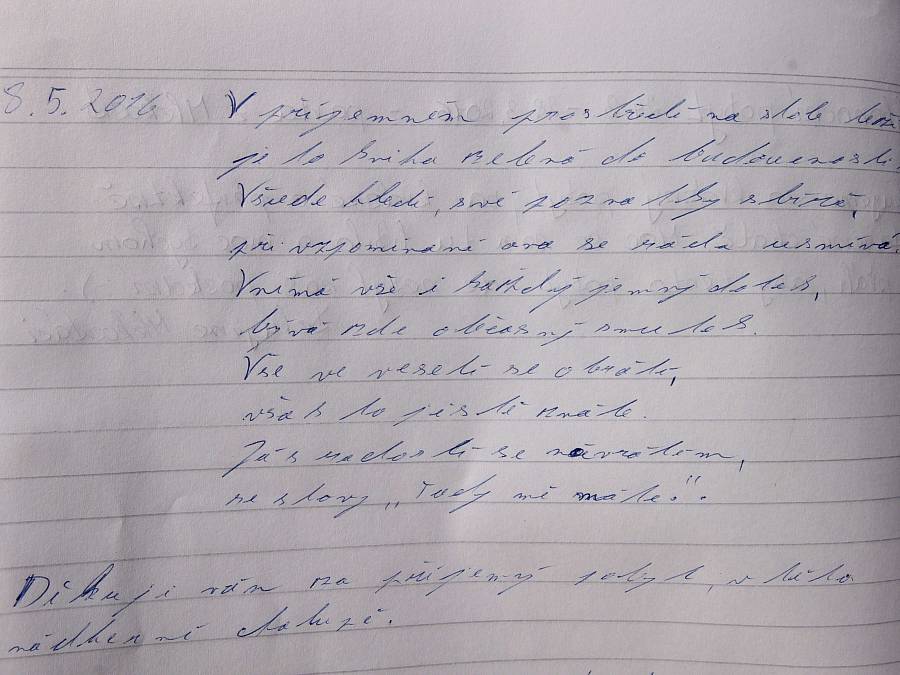 8.5.2016 V příjemném prostředí na stole leží
je to kniha zelená do budoucnosti,
Všude hledí, své poznatky sbírá,
při vzpomínání ona se ráda usmívá.
Vnímá vše i každý jemný dotek,
bývá zde občasný smutek.
Vše ve veselí se obrátí,
však to jistě znáte.
Já s radostí se navrátím,
se slovy "Tady mě máte!".
Děkuji vám za příjemný pobyt, v této
nádherné chalupě.